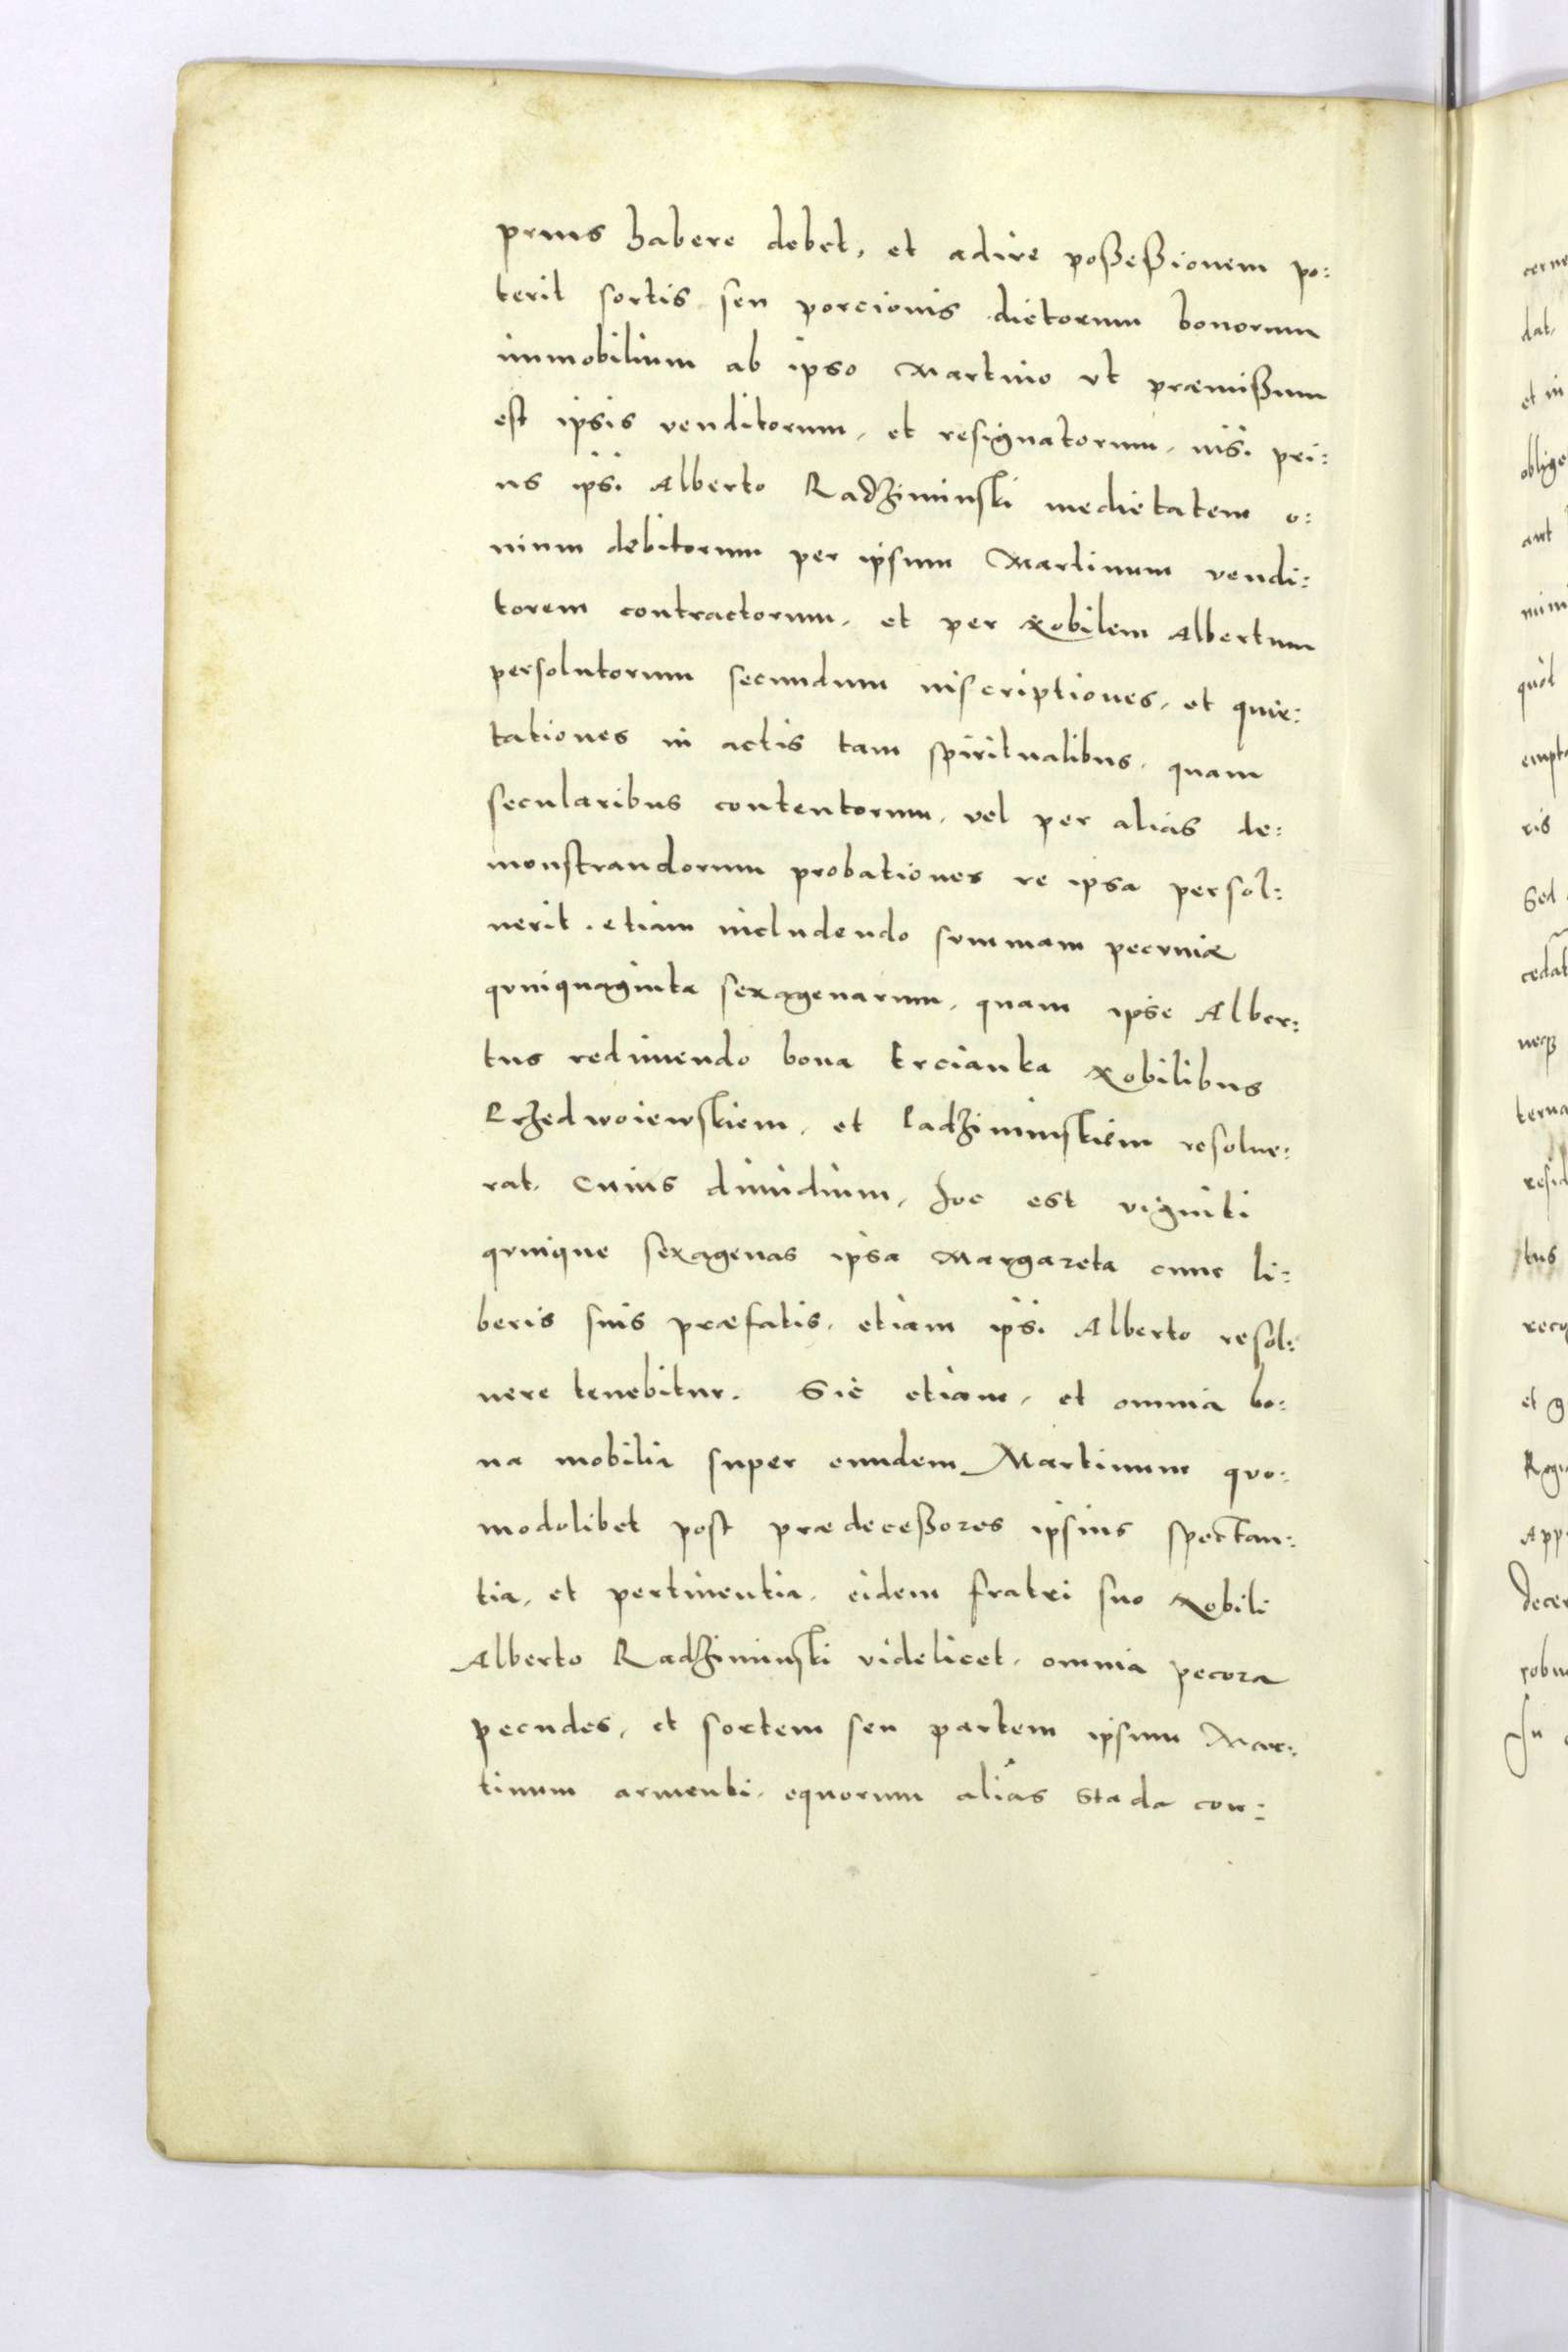 prius habere debet, et adire poßeßionem po:
terit sortis seu porcionis dictorum bonorum
immobilium ab ipso Martino vt præmißum
est ipsis venditorum, et resignatorum, nisi pri:
us ipsi Alberto Radziminski medietatem o:
nium debitorum per ipsum Martinum vendi:
torem contractorum, et per Nobilem Albertum
persolutorum secundum inscriptiones, et quie:
tationes in actis tam spiritualibus, quam
secularibus contentorum, vel per alias de:
monstrandorum probationes re ipsa persol:
uerit. etiam includendo summam pecuniæ
quinquaginta sexagenarum, quam ipse Alber:
tus redimendo bona Trcianka Nobilibus
Rzedwoiewskiem, et Radziminskiem resolue:
rat, Cuius dimidium, hoc est viginti
quinque sexagenas ipsa Margareta cum li:
beris suis præfatis, etiam ipsi Alberto resol:
uere tenebitur. Sic etiam, et omnia bo:
na mobilia super eundem Martinum quo:
modolibet post prædeceßores ipsius spectan:
tia, et pertinentia, eidem fratri suo Nobili
Alberto Radziminski videlicet, omnia pecora
pecudes, et sortem seu partem ipsum Mar:
tinum armenti, equorum alias stada con:
cerne
dat,
et in
aut
quòt
ris
Sed
neqz
terna
tus
et
In